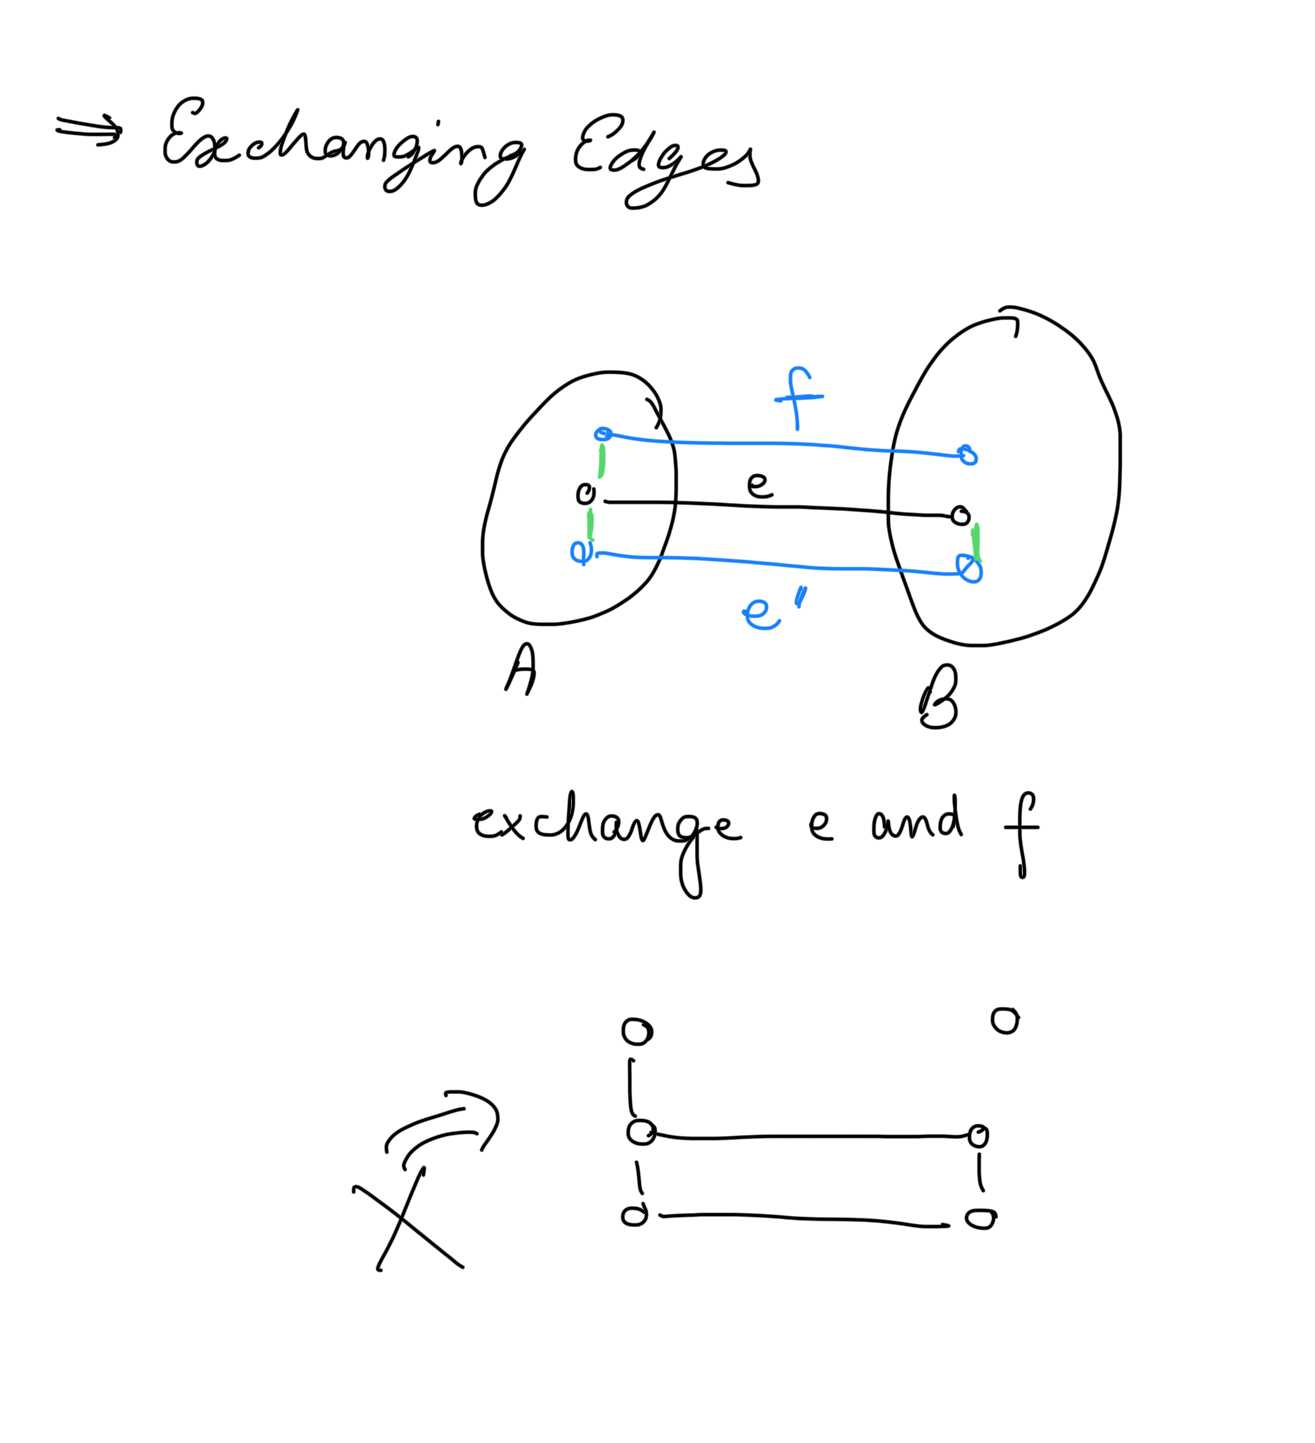 ⇒ Exchanging Edges
f
e
e'
A
B
exchange e and f